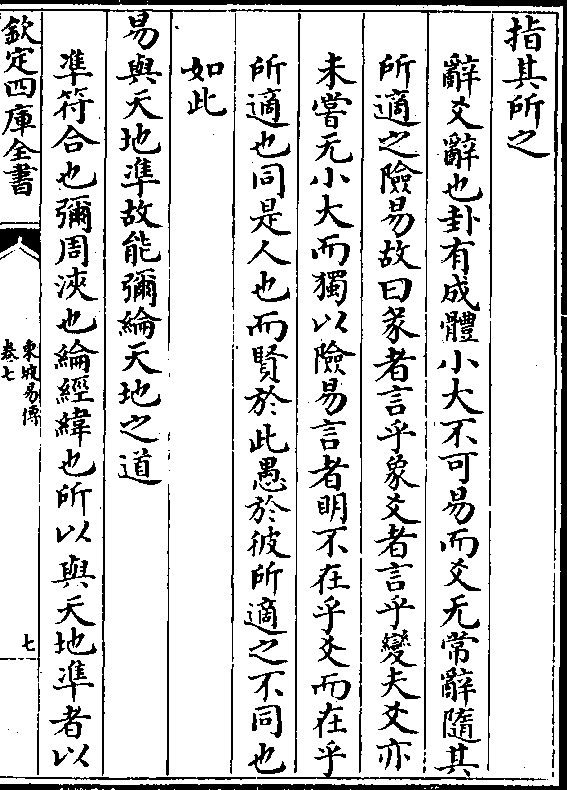 指其所之
辭爻辭也卦有成體小大不可易而爻无常辭隨其
所適之險易故曰彖者言乎象爻者言乎變夫爻亦
未嘗无小大而獨以險易言者明不在乎爻而在乎
所適也同是人也而賢於此愚於彼所適之不同也
如此
易與天地準故能彌綸天地之道
準符合也彌周浹也綸經緯也所以與天地準者以
欽定四庫全書
東坡易傳
卷七
七